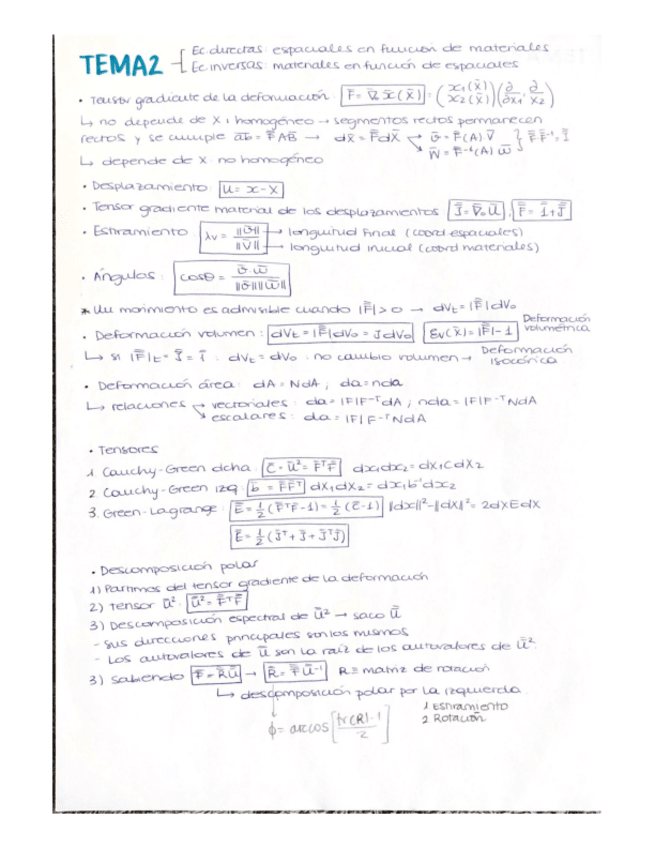 TEMA2 { Ec. directas: espaciales en función de materiales
Ec. inversas: materiales en función de espaciales
• Tensor gradiente de la deformación: F̿ = ∇̄₀ x̄(X̄) = (x₁(X̄) x₂(X̄)) (∂/∂x₁, ∂/x₂)
↳ no depende de X: homogéneo → segmentos rectos permanecen
rectos y se cumple a̅b̅ = F̿ A̅B̅ → dx̄ = F̿dX̄ v̄ = F(A) V̄ } F̿F̿⁻¹ = 1̿
W̄ = F̿⁻¹(A) w̄
↳ depende de X: no homogéneo
• Desplazamiento: U = x - X
• Tensor gradiente material de los desplazamientos J̿ = ∇̄₀Ū, F̿ = 1̿ + J̿
• Estiramiento: λv = ||v̄|| / ||V̄|| → longuitud final (coord espaciales)
→ longuitud inicial (coord materiales)
• Ángulos: cosθ = v̄·w̄ / ||v̄|| ||w̄||
* Un movimiento es admisible cuando |F̿| > 0 → dVt = |F̿| dV₀
• Deformación volumen: dVt = |F̿|dV₀ = JdV₀ Ev(X̄) = |F̿| - 1 Deformación volumétrica
↳ si |F̿|t = J̿ = 1̄ : dVt = dV₀ : no cambio volumen → Deformación
isocórica
• Deformación área: dA = NdA ; da = nda
↳ relaciones vectoriales: da = |F|F⁻ᵀdA ; nda = |F|F⁻ᵀNdA
escalares: da = |F| F⁻ᵀNdA
• Tensores
1 Cauchy-Green dcha: C̿ = U̿² = F̿ᵀF̿ dx₁dx₂ = dX₁CdX2
2 Cauchy-Green izq: b̿ = F̿F̿ᵀ dX₁dX₂ = dx₁b⁻¹dx₂
3. Green-Lagrange: E̿ = ½(F̿ᵀF̿ - 1) = ½(C̿ - 1) ||dx||² - ||dX||² = 2dXEdX
E̿ = ½(J̿ᵀ + J̿ + J̿ᵀJ̿)
• Descomposición polar
1) Partimos del tensor gradiente de la deformación
2) Tensor U̿²: U̿² = F̿ᵀF̿
3) Descomposición espectral de U̿² → saco U̿
- Sus direcciones principales son las mismas
- Los autovalores de U̿ son la raíz de los autovalores de U̿².
3) Sabiendo F̿ = R̿U̿ → R̿ = F̿U̿⁻¹ R ≡ matriz de rotación
↳ descomposición polar por la izquierda
1 Estiramiento
2 Rotación
ϕ = arccos [tr(R) - 1 / 2]